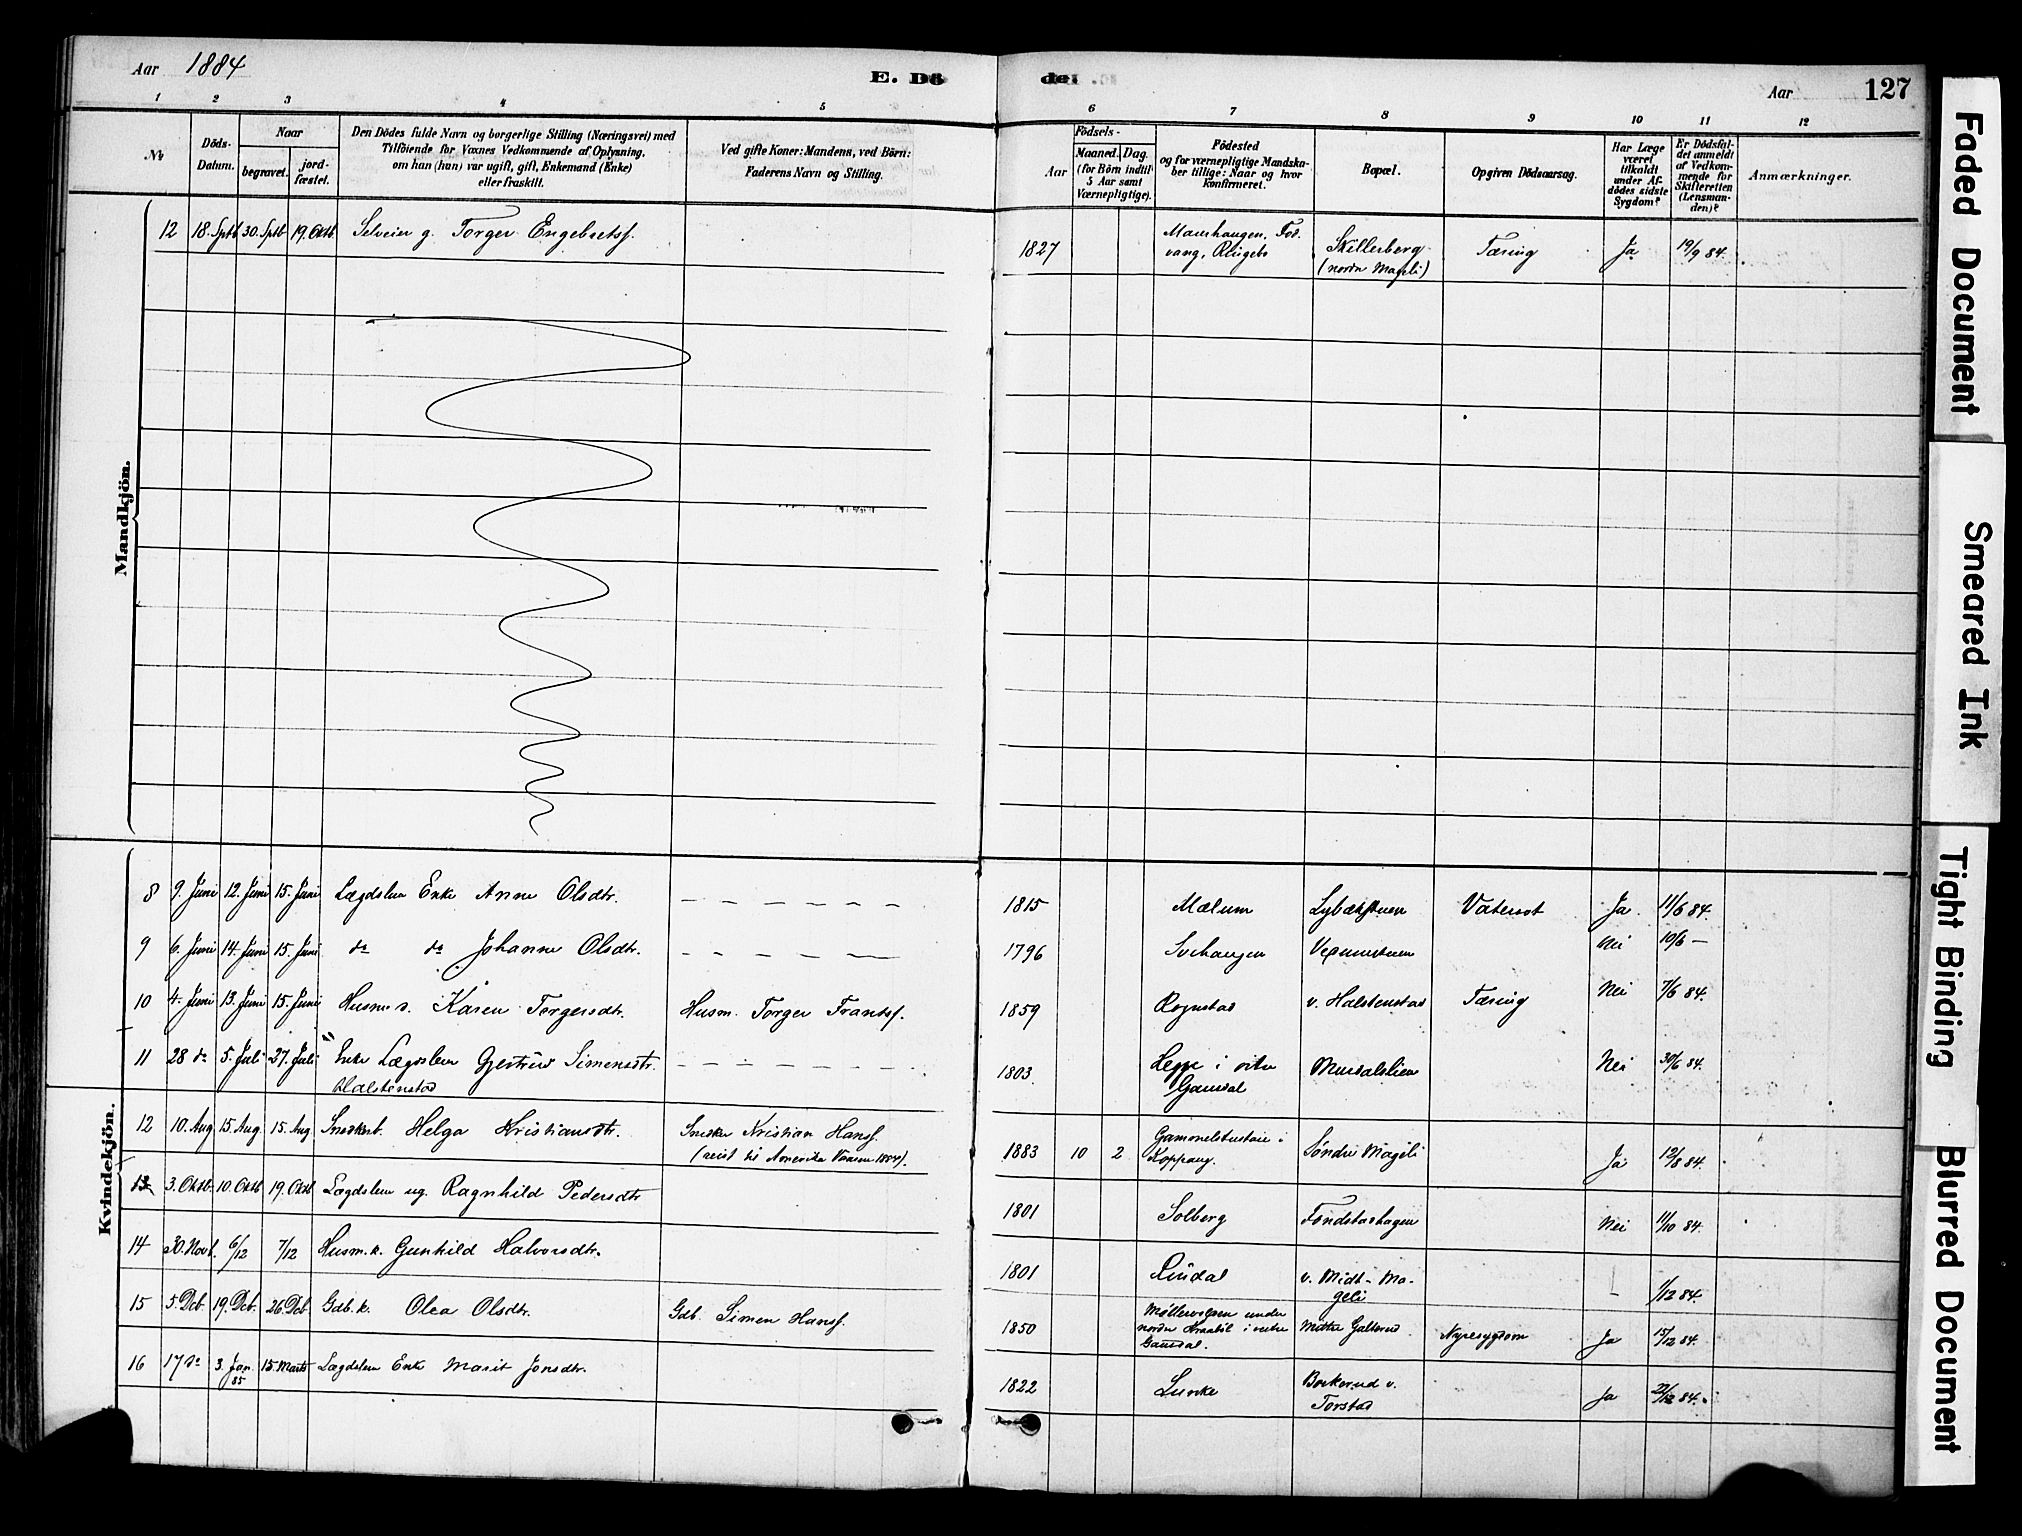 Aar 1884
E. Dö
de.
Aar
127
1 2 3 4 5 6 7 8 9 10 11 12
No
Döds-
Datum.
Naar
begravet.
jord-
fæstet.
Den Dödes fulde Navn og borgerlige Stilling (Næringsvei) med
Tilföiende for Voxnes Vedkommende af Oplysning,
om han (hun) var ugift, gift, Enkemand (Enke)
eller fraskilt.
Ved gifte Koner: Mandens, ved Börn:
Faderens Navn og Stilling.
Aar
Födsels-
Maaned. Dag.
(for Börn indtil
5 Aar samt
Værnepligtige).
Födested
og for værnepligtige Mandska-
ber tillige: Naar og hvor
konfirmeret.
Bopæl.
Opgiven Dödsaarsag.
Har Læge
været
tilkaldt
under Af-
dödes sidste
Sygdom?
Er Dödsfal-
det anmeldt
af Vedkom-
mende for
Skifteretten
(Lensman-
den)?
Anmærkninger.
Mandkjön.
12 18. Sptb 30. Sptb 19. Oktb Selveier g. Torger Engebretsf. 1827 Fod-
vang, Ringebo Skillerberg
(nordre Mageli) Tæring Ja 19/9 84.
Kvindekjön.
8 9. Juni 12. Juni 15. Juni Lægdslem Enke Anne Olsdtr. — — — — — — 1815 Mælum Vatersot Ja 11/6 84.
9 6. Juni 14. Juni 15. Juni do do Johanne Olsdtr. — — — — — 1796 Svehaugen Nei 10/6 —
10 4. Juni 13. Juni 15. Juni Husm. d. Karen Torgersdtr. Husm. Torger Frantsf. 1859 Rognstad v. Halstenstad Tæring Nei 7/6 84.
11 28 do 5. Juli 27. Juli Enke Lægdslem Gjertrud Simensdtr.
Halstenstad — — — — — — 1803. i østre
Gausdal Nei 30/6 84.
12 10. Aug 15. Aug 15. Aug Snedkerb. Helga Kristiansdtr. Snedker Kristian Hansf.
(reist til Amerika Vaaren 1884). 1883 10 2 i
Koppang. Søndre Mageli Ja 12/8 84.
13 3. Oktb. 10. Oktb 19. Oktb Lægdslem ug. Ragnhild Pedersdtr 1801 Solberg Fondstadhagen Nei 11/10 84.
14 30. Novb. 6/12 7/12 Husm. k. Gunhild Halvorsdtr. 1801 Rindal v. Midt-Ma-
geli 1/12 84.
15 5. Dcb. 19. Dcb. 26. Dcb Gdb. k. Olea Olsdtr. Gdb. Simen Hansf. 1850 under
nordre i vestre
Gausdal. Nyresygdom Ja 15/12 84.
16 17 do 3. Jan.
85 15. Marts Lægdslem Enke Marit Jonsdtr. 1822 Lunke v.
Torstad Ja 22/12 84.
Faded Document
Smeared Ink
Tight Binding
Blurred Document